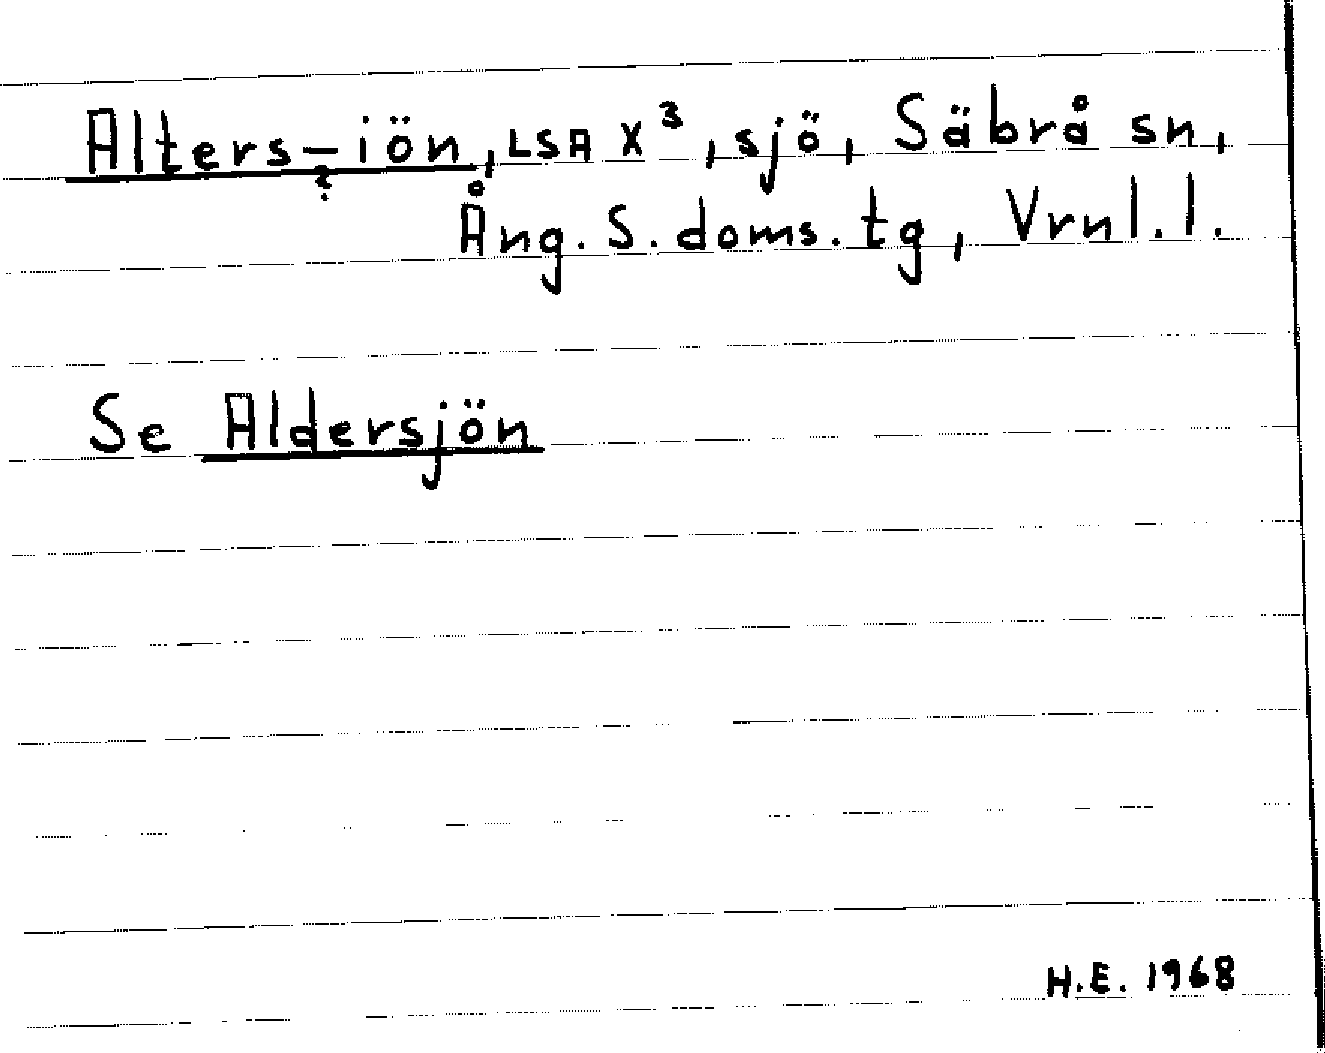 Alters-iön, LSA X³, sjö, Säbrå sn,
?
Ång. S. doms. tg, Vrnl. l.
Se Aldersjön
H.E. 1968